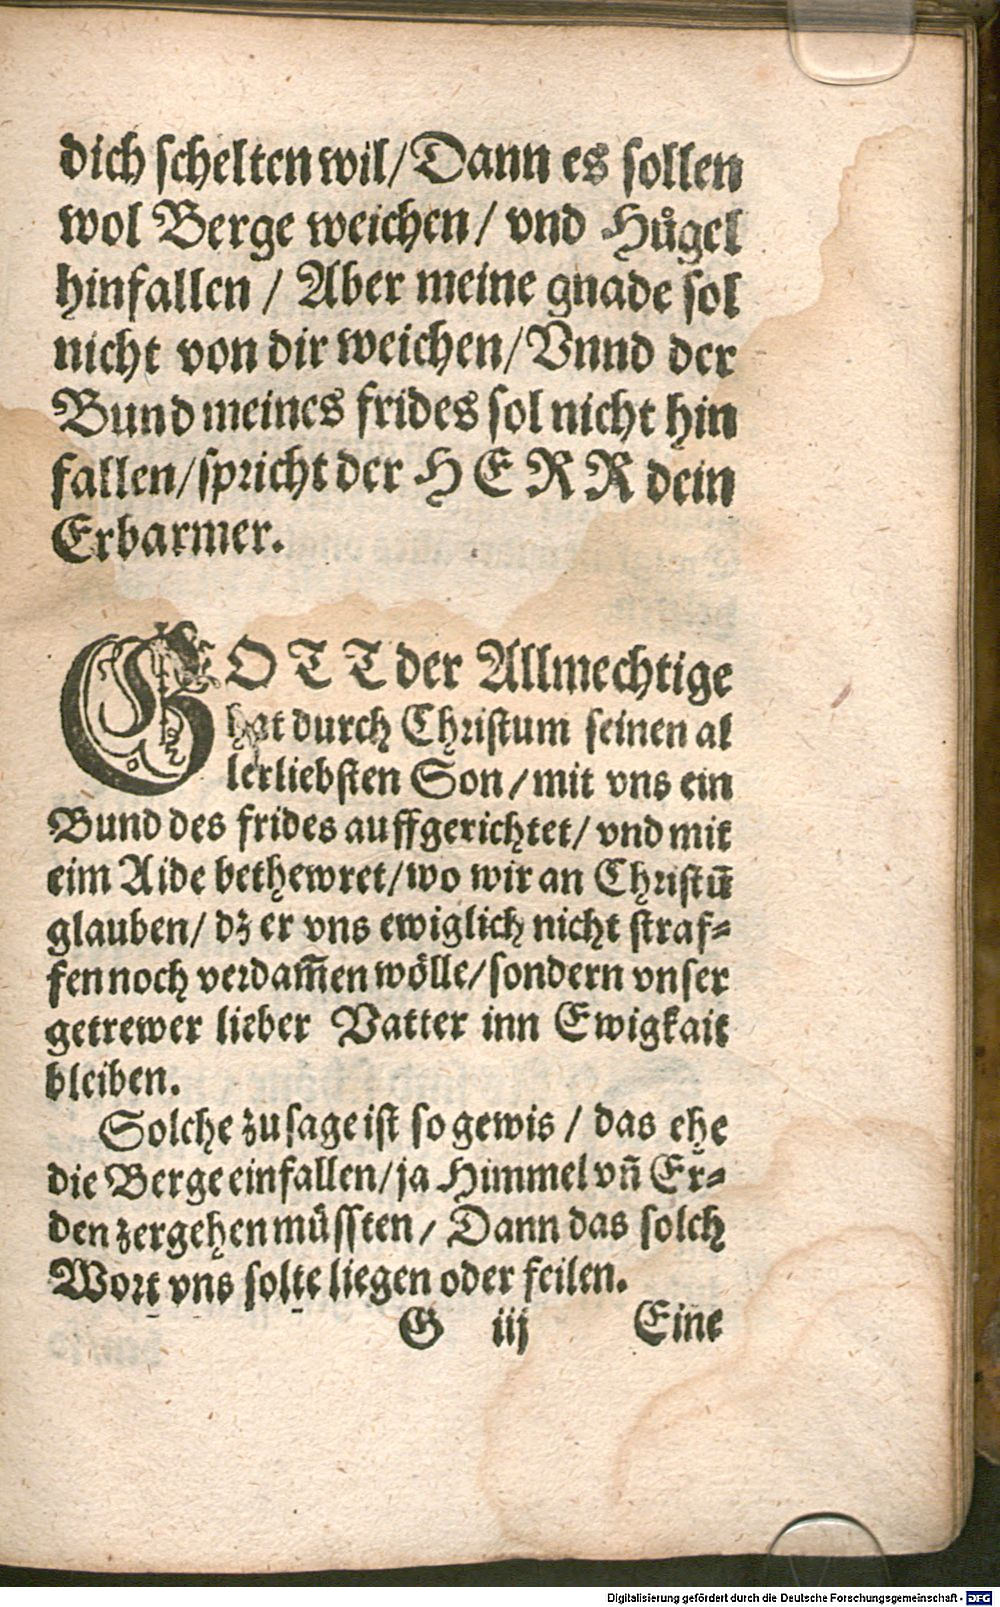 dich schelten wil/ Dann es sollen
wol Berge weichen/ vnd Huͤgel
hinfallen / Aber meine gnade sol
nicht von dir weichen/ Vnnd der
Bund meines frides sol nicht hin
fallen/ spricht der HERR dein
Erbarmer.
GOTT der Allmechtige
hat durch Christum seinen al
lerliebsten Son/ mit vns ein
Bund des frides auffgerichtet/ vnd mit
eim Aide bethewret/ wo wir an Christū
glauben/ dz er vns ewiglich nicht straf-
fen noch verdam̄en woͤlle/ sondern vnser
getrewer lieber Vatter inn Ewigkait
bleiben.
Solche zusage ist so gewis / das ehe
die Berge einfallen/ ja Himmel vn̄ Er-
den zergehen muͤssten/ Dann das solch
Wort vns solte liegen oder feilen.
G iij Eine
Digitalisierung gefördert durch die Deutsche Forschungsgemeinschaft - DFG